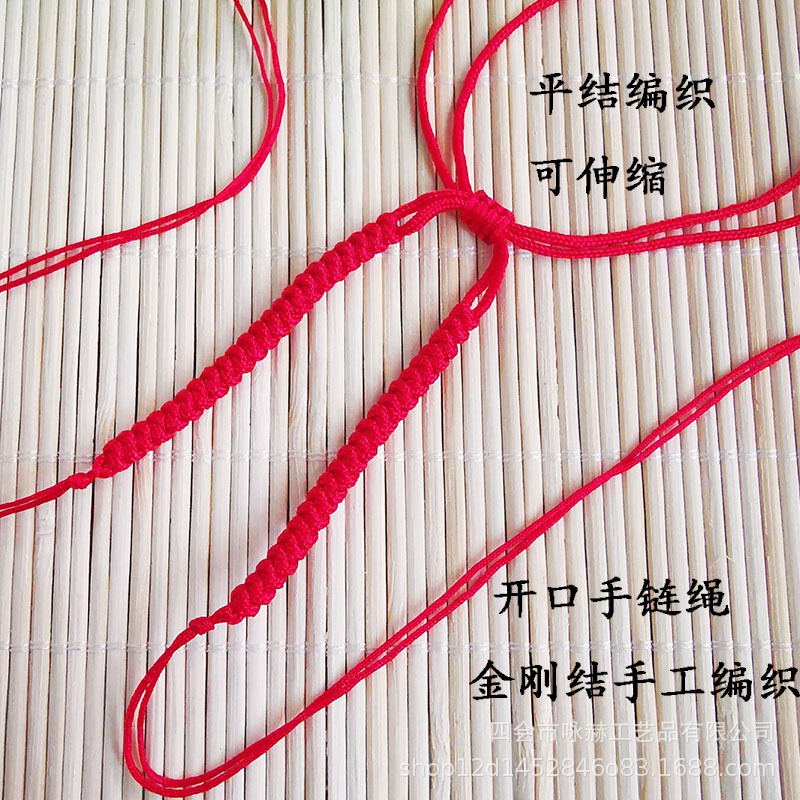 平结编织
可伸缩
开口手链绳
金刚结手工编织
四会市咏赫工艺品有限公司
shop12d1452846o83.1688.com